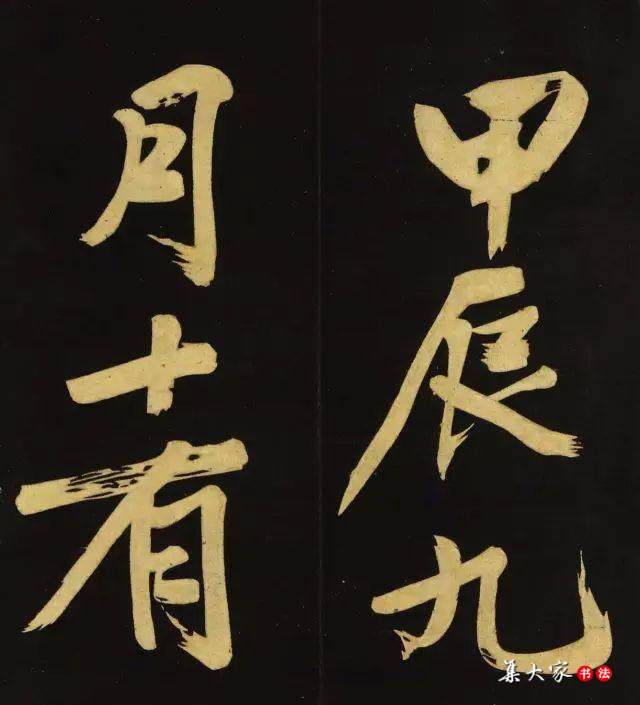 甲辰九
月十有
集大家书法